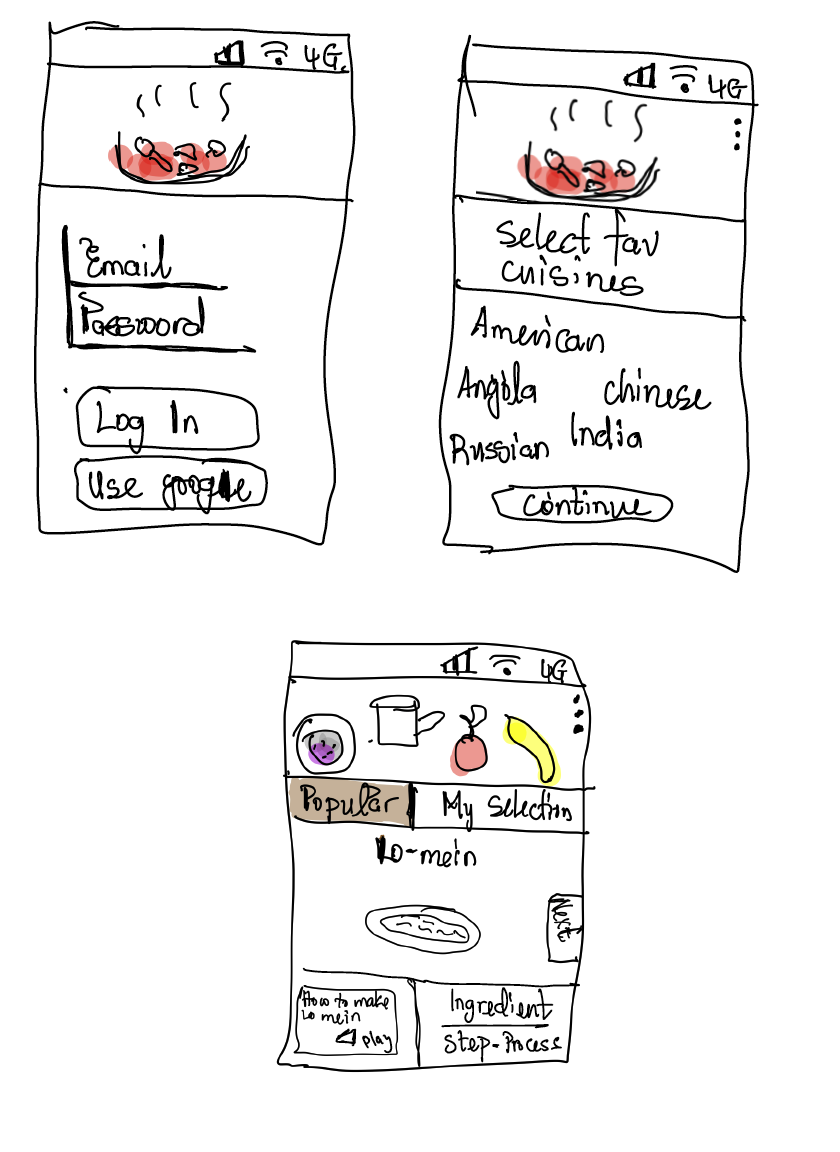 4G
Email
Password
Log In
Use google
4G
Select fav
cuisines
American
Angola
chinese
Russian
India
Continue
4G
Popular
My Selection
Lo-mein
Next
How to make
Lo mein
play
Ingredient
Step-Process